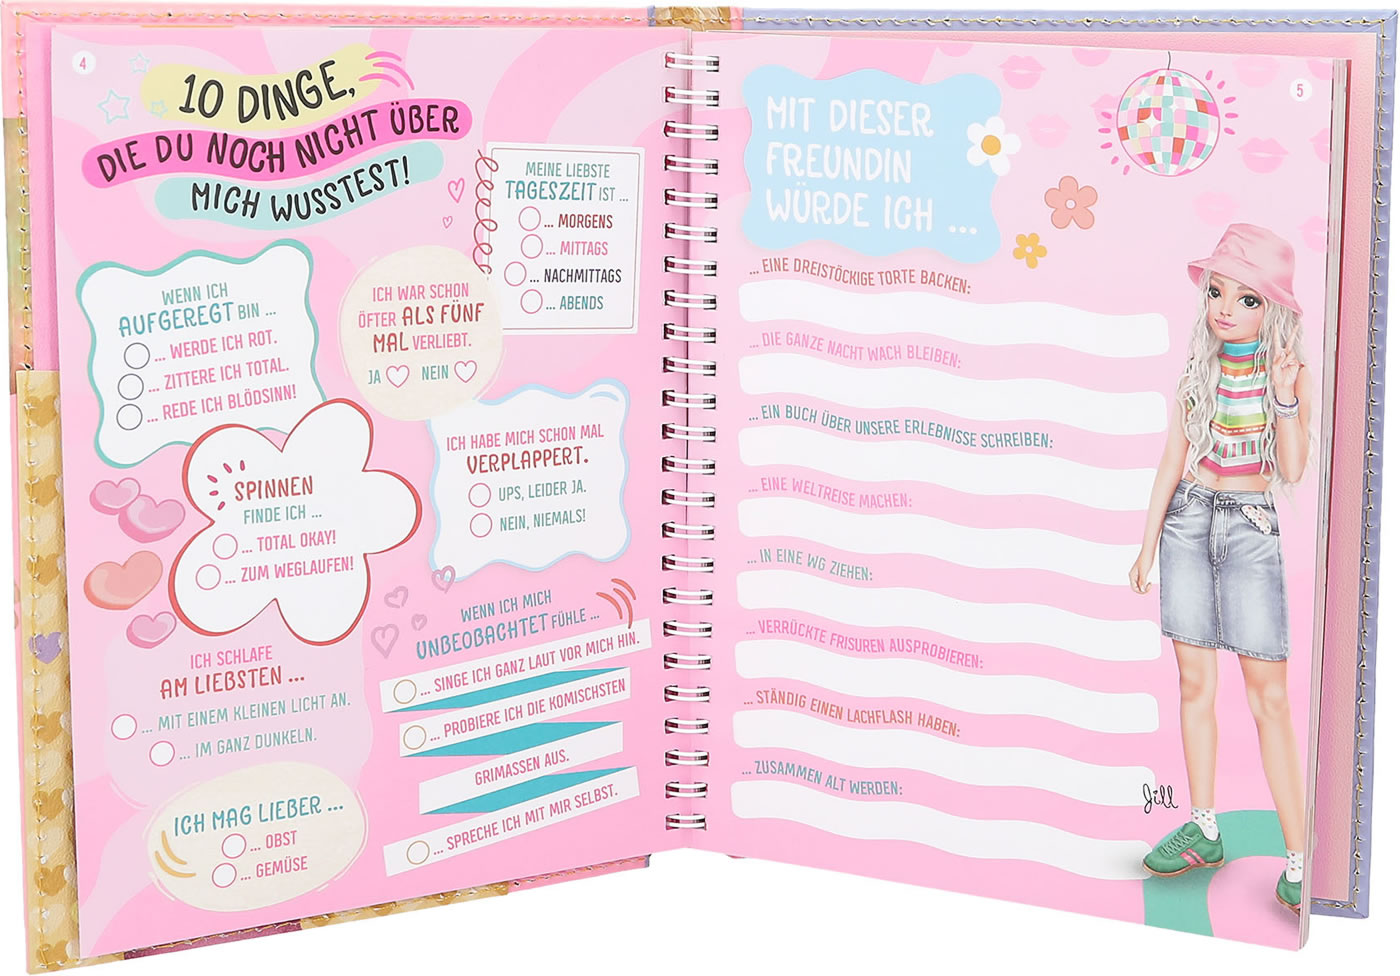 4
10 DINGE,
DIE DU NOCH NICHT ÜBER
MICH WUSSTEST!
MEINE LIEBSTE
TAGESZEIT IST ...
... MORGENS
... MITTAGS
... NACHMITTAGS
... ABENDS
WENN ICH
AUFGEREGT BIN ...
... WERDE ICH ROT.
... ZITTERE ICH TOTAL.
... REDE ICH BLÖDSINN!
ICH WAR SCHON
ÖFTER ALS FÜNF
MAL VERLIEBT.
JA NEIN
ICH HABE MICH SCHON MAL
VERPLAPPERT.
UPS, LEIDER JA.
NEIN, NIEMALS!
SPINNEN
FINDE ICH ...
... TOTAL OKAY!
... ZUM WEGLAUFEN!
WENN ICH MICH
UNBEOBACHTET FÜHLE ...
... SINGE ICH GANZ LAUT VOR MICH HIN.
... PROBIERE ICH DIE KOMISCHSTEN
GRIMASSEN AUS.
... SPRECHE ICH MIT MIR SELBST.
ICH SCHLAFE
AM LIEBSTEN ...
... MIT EINEM KLEINEN LICHT AN.
... IM GANZ DUNKELN.
ICH MAG LIEBER ...
... OBST
... GEMÜSE
5
MIT DIESER
FREUNDIN
WÜRDE ICH ...
... EINE DREISTÖCKIGE TORTE BACKEN:
... DIE GANZE NACHT WACH BLEIBEN:
... EIN BUCH ÜBER UNSERE ERLEBNISSE SCHREIBEN:
... EINE WELTREISE MACHEN:
... IN EINE WG ZIEHEN:
... VERRÜCKTE FRISUREN AUSPROBIEREN:
... STÄNDIG EINEN LACHFLASH HABEN:
... ZUSAMMEN ALT WERDEN:
Jill